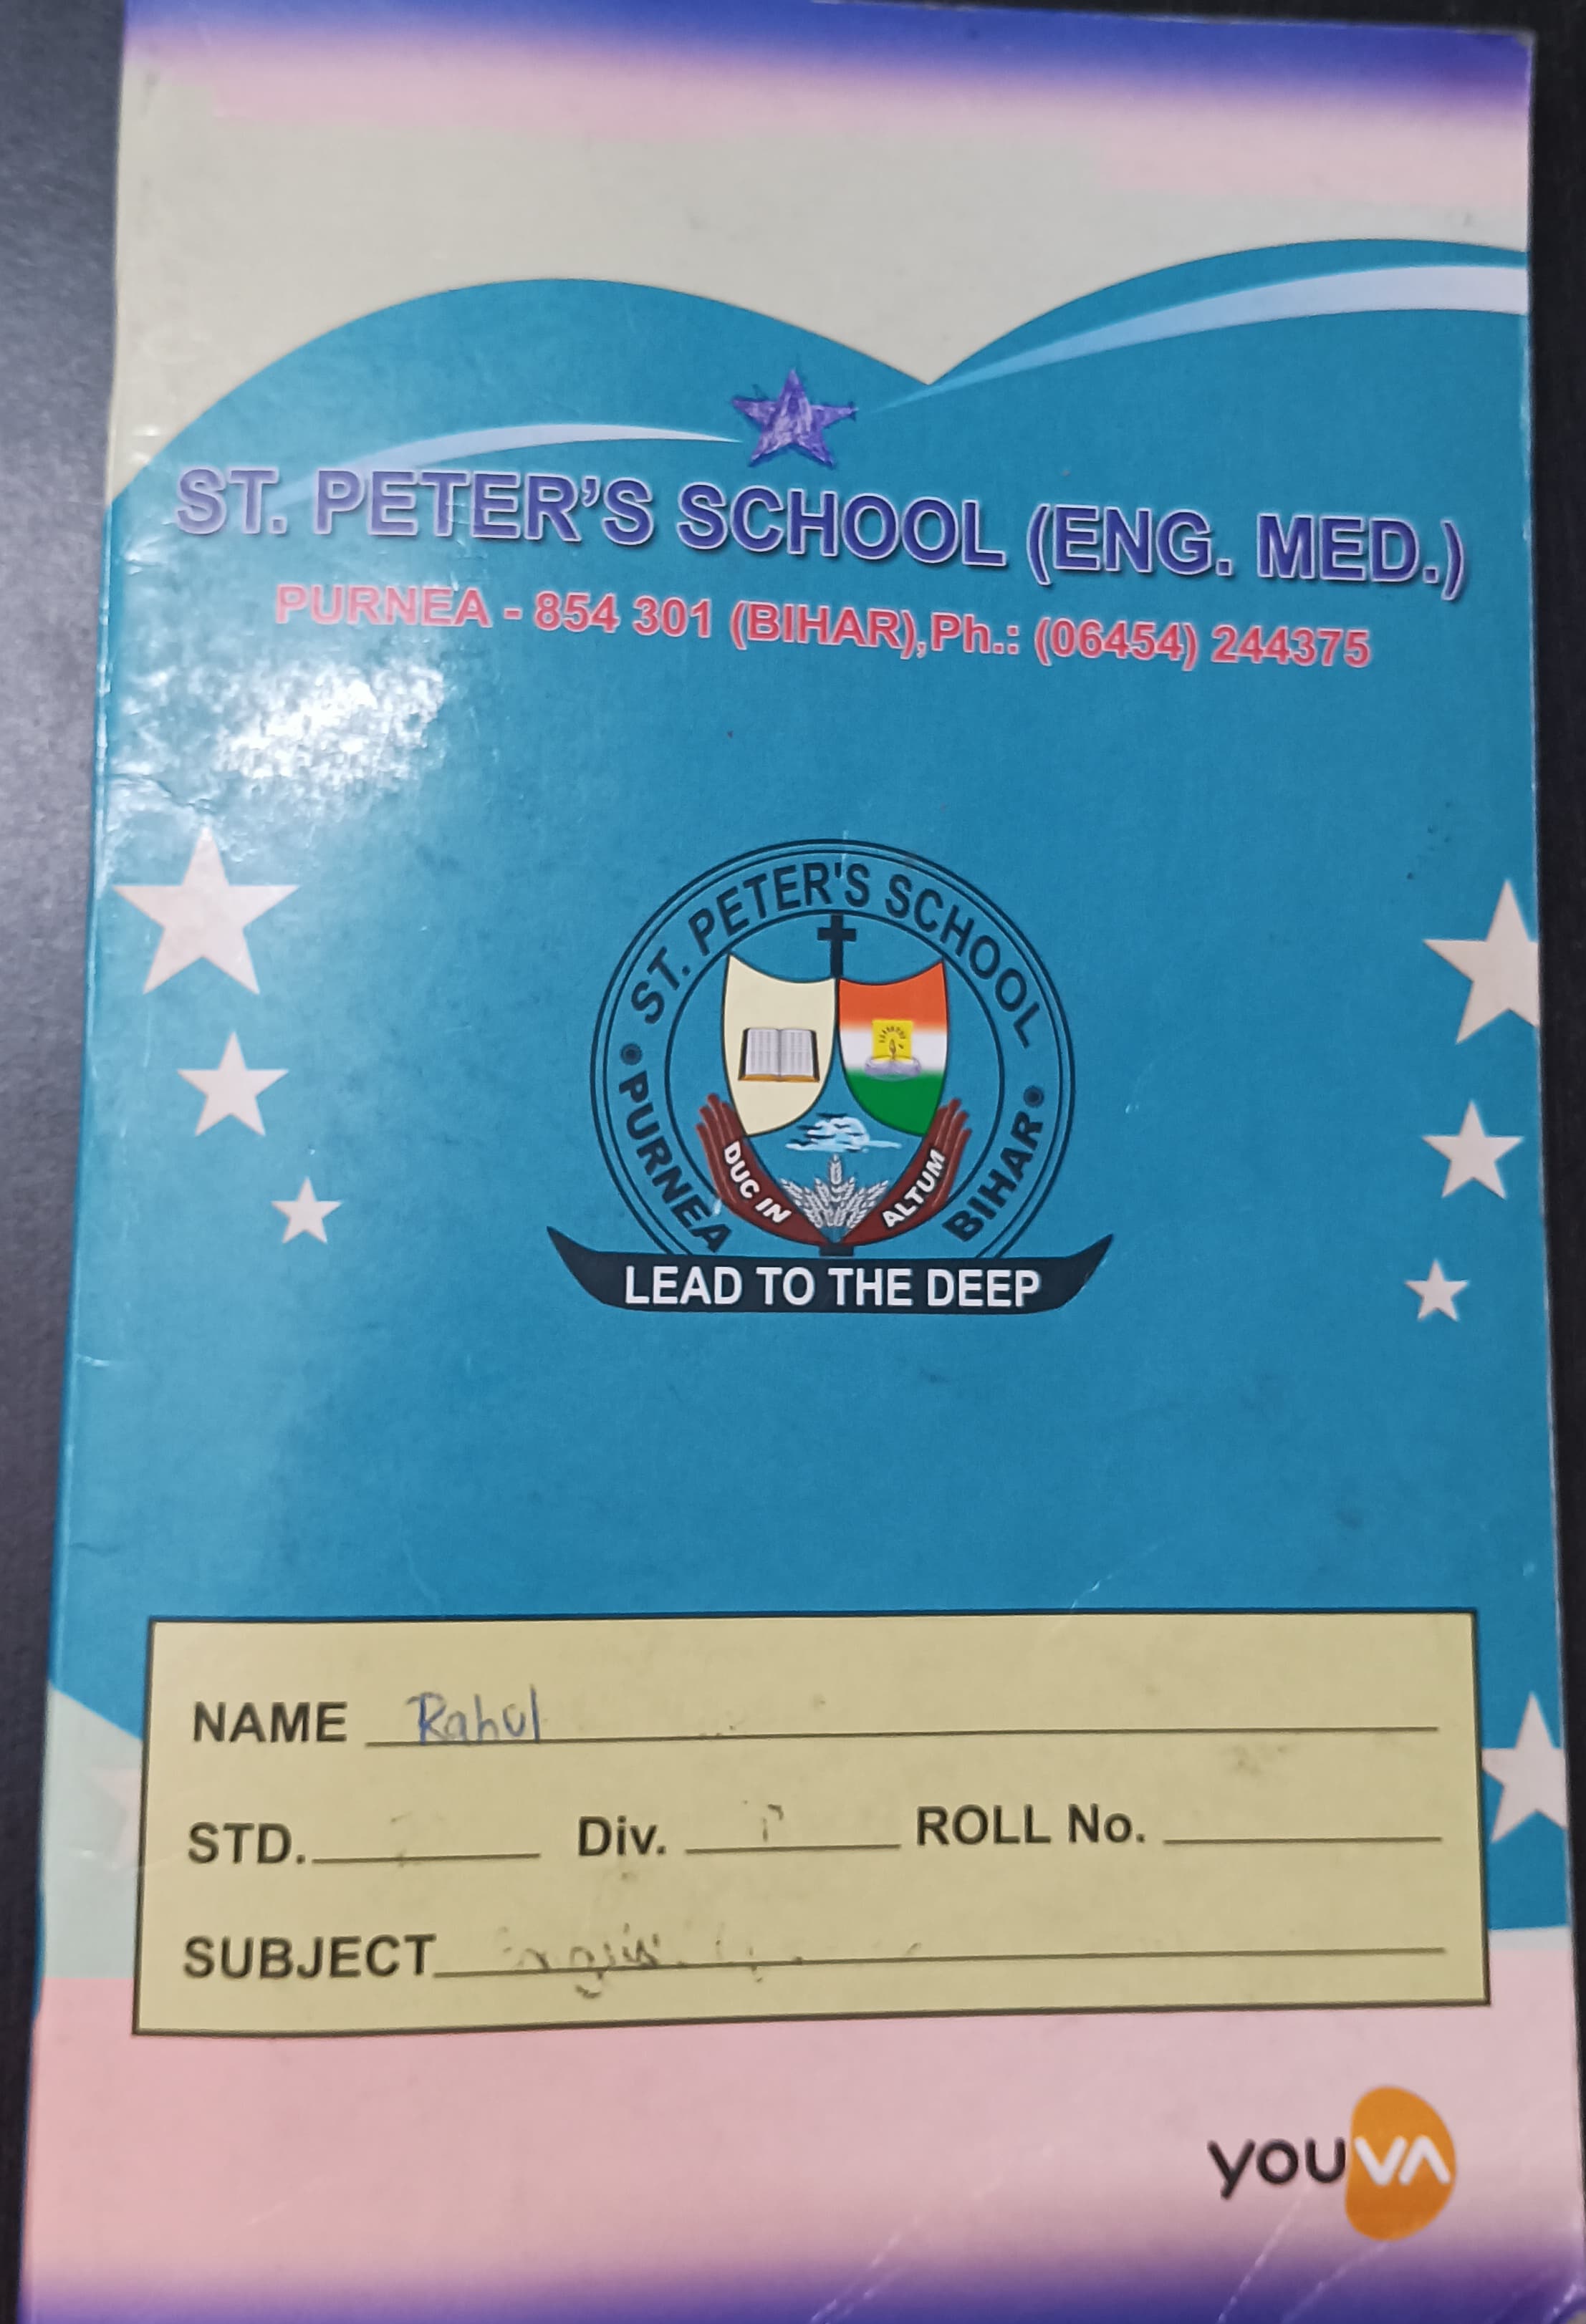 ST. PETER'S SCHOOL (ENG. MED.)
PURNEA - 854 301 (BIHAR),Ph.: (06454) 244375
ST. PETER'S SCHOOL
PURNEA BIHAR
DUC IN ALTUM
LEAD TO THE DEEP
NAME Rahul
STD. Div. ROLL No.
SUBJECT
youva